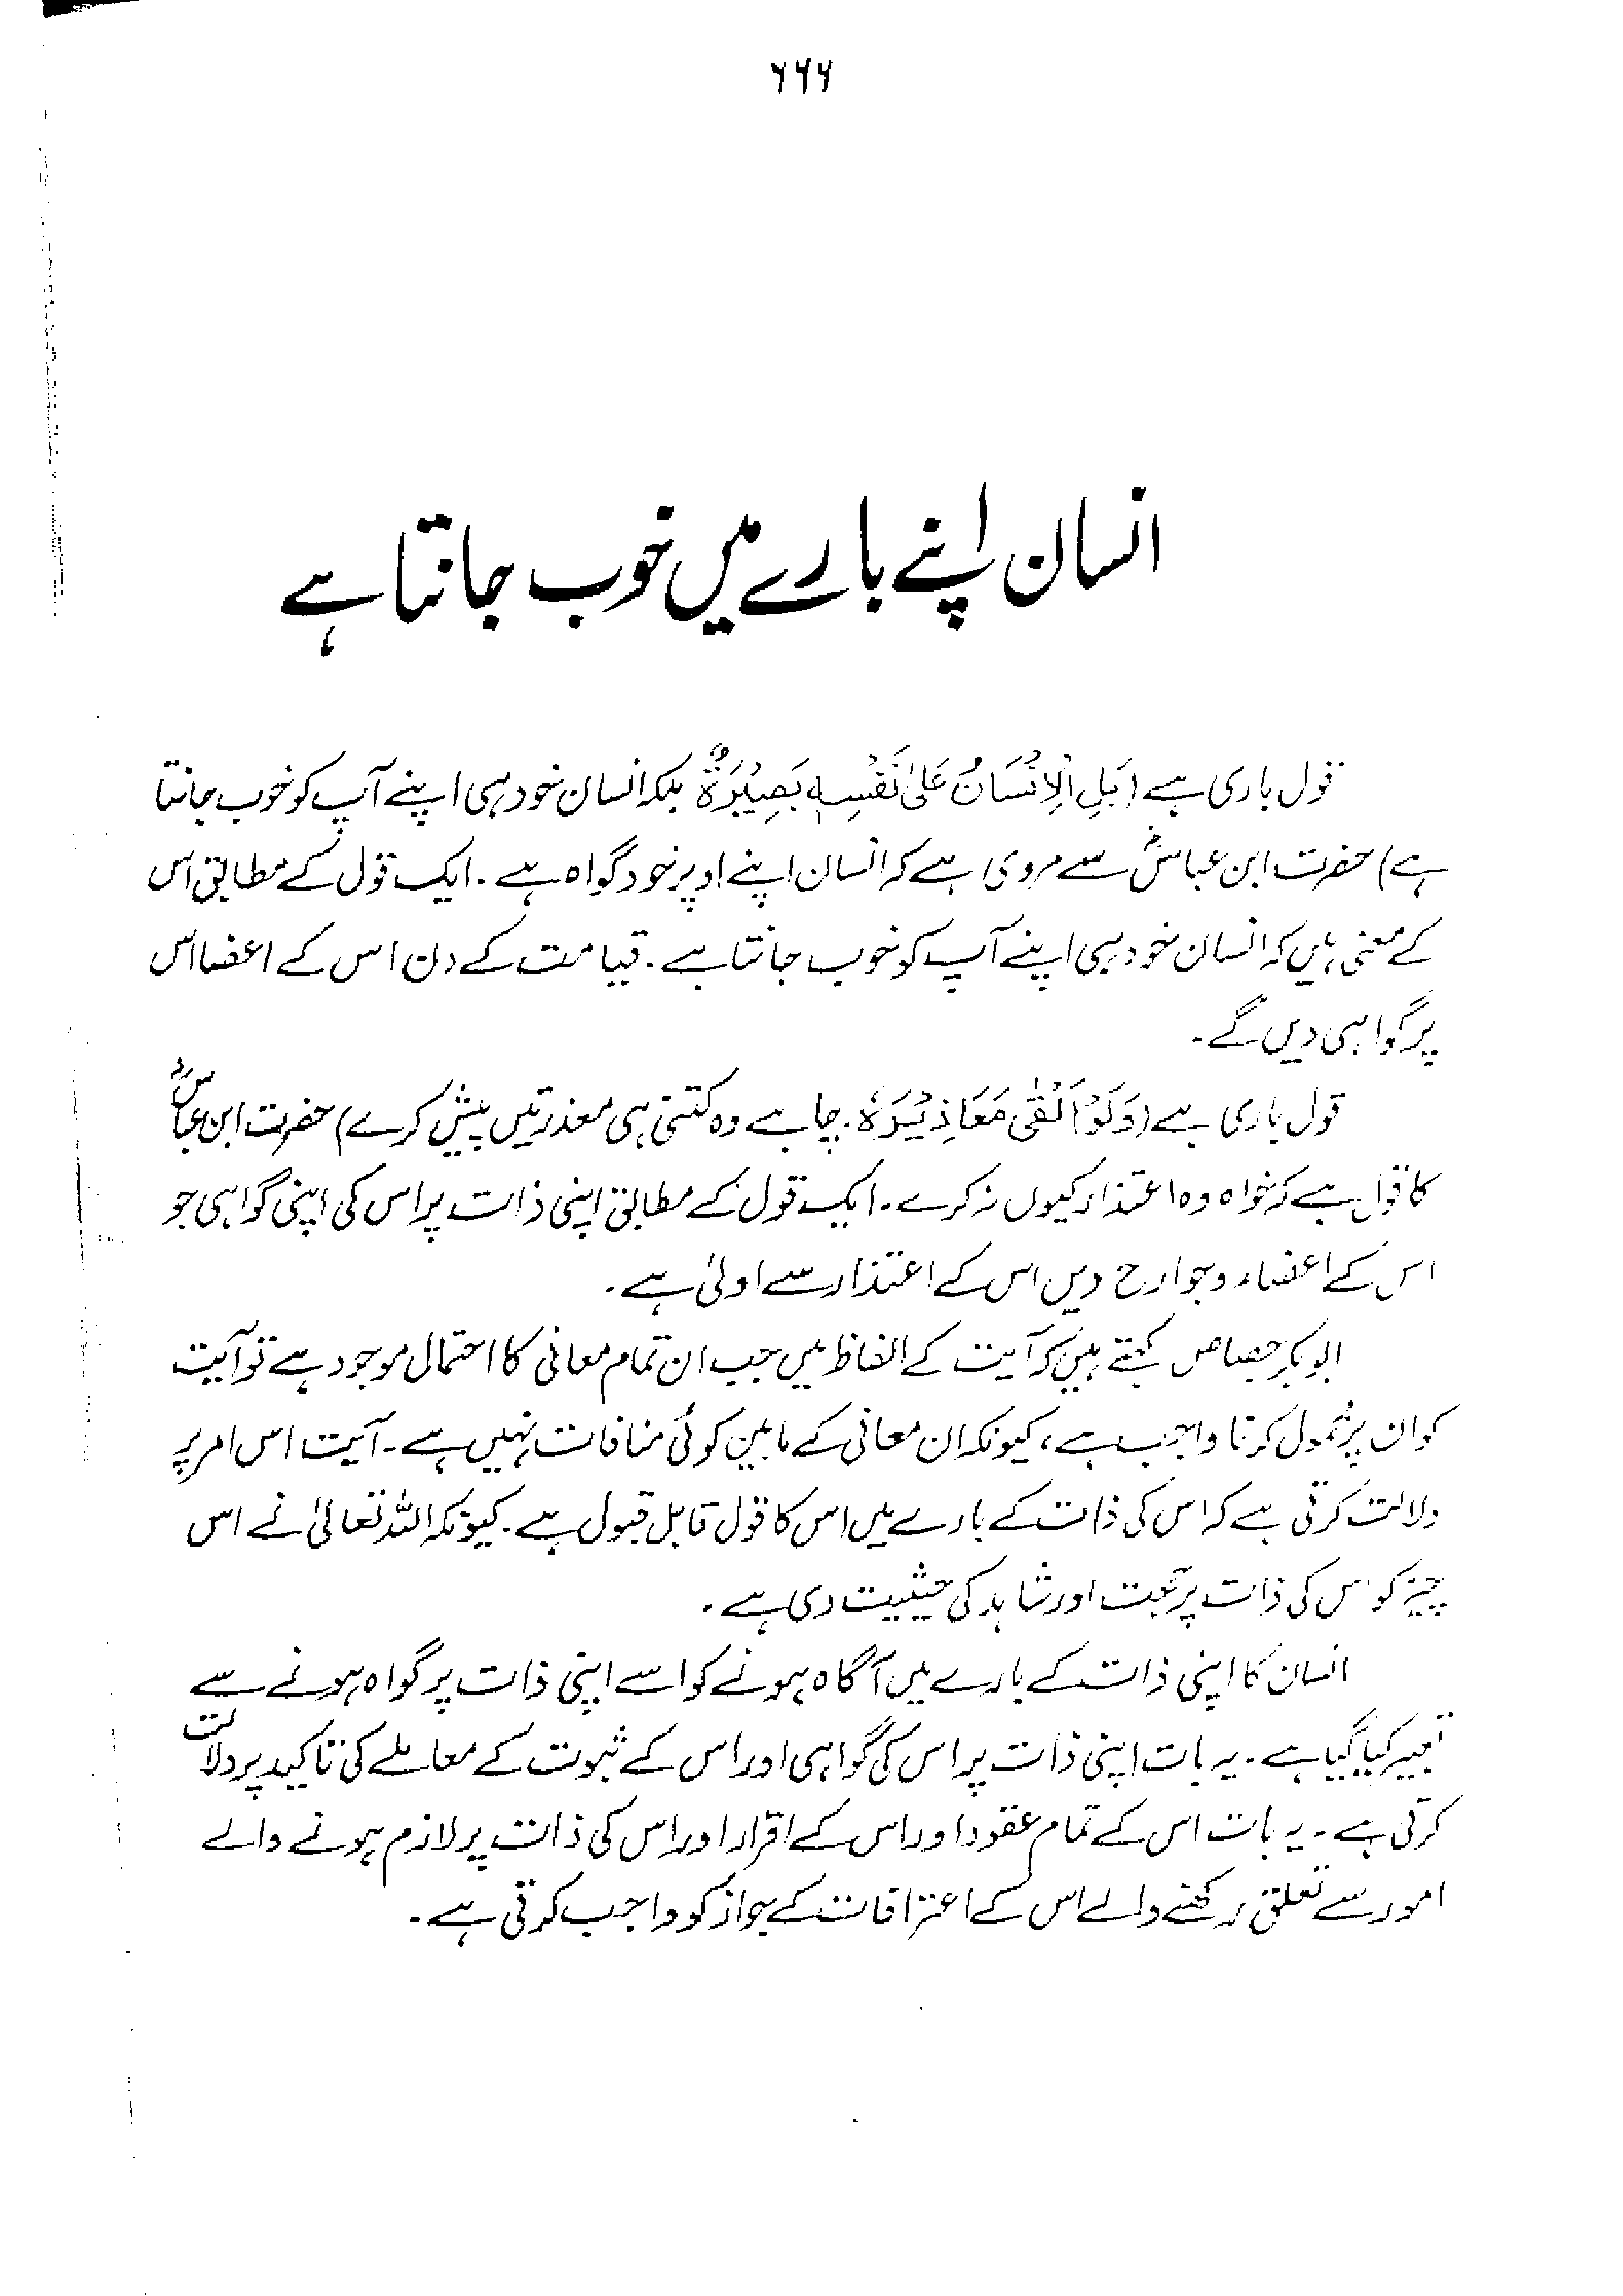 ۶۶۶
انسان اپنے بارے میں خوب جانتا ہے
قول باری ہے (بَلِ الْاِنْسَانُ عَلٰی نَفْسِہٖ بَصِیْرَۃٌ بلکہ انسان خود ہی اپنے آپ کو خوب جانتا
ہے) حضرت ابن عباسؓ سے مروی ہے کہ انسان اپنے اوپر خود گواہ ہے۔ ایک قول کے مطابق اس
کے معنی ہیں کہ انسان خود ہی اپنے آپ کو خوب جانتا ہے۔ قیامت کے دن اس کے اعضا اس
پر گواہی دیں گے۔
قول باری ہے (وَلَوْ اَلْقٰی مَعَاذِیْرَہٗ۔ چاہے وہ کتنی ہی معذرتیں پیش کرے) حضرت ابن عباسؓ
کا قول ہے کہ خواہ وہ اعتذار کیوں نہ کرے۔ ایک قول کے مطابق اپنی ذات پر اس کی اپنی گواہی جو
اس کے اعضاء و جوارح دیں اس کے اعتذار سے اولیٰ ہے۔
ابوبکر جصاص کہتے ہیں کہ آیت کے الفاظ میں جب ان تمام معانی کا احتمال موجود ہے تو آیت
کو ان پر محمول کرنا واجب ہے، کیونکہ ان معانی کے مابین کوئی منافات نہیں ہے۔ آیت اس امر پر
دلالت کرتی ہے کہ اس کی ذات کے بارے میں اس کا قول قابل قبول ہے۔ کیونکہ اللہ تعالیٰ نے اس
چیز کو اس کی ذات پر حجت اور شاہد کی حیثیت دی ہے۔
انسان کا اپنی ذات کے بارے میں آگاہ ہونے کو اسے اپنی ذات پر گواہ ہونے سے
تعبیر کیا گیا ہے۔ یہ بات اپنی ذات پر اس کی گواہی اور اس کے ثبوت کے معاملے کی تاکید پر دلالت
کرتی ہے۔ یہ بات اس کے تمام عقود اور اس کے اقرار اور اس کی ذات پر لازم ہونے والے
امور سے تعلق رکھنے والے اس کے اعترافات کے جواز کو واجب کرتی ہے۔